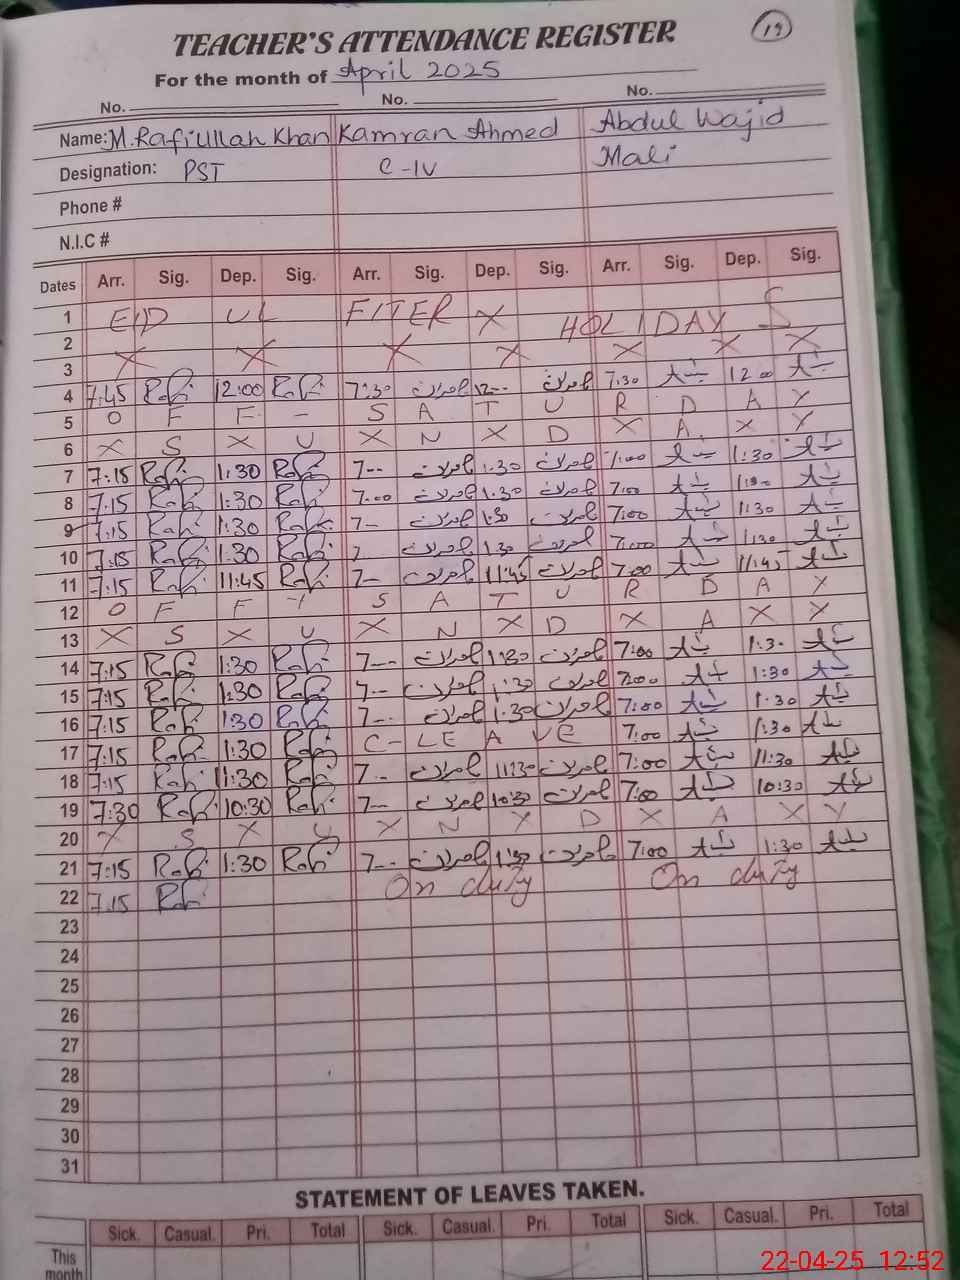 19
TEACHER'S ATTENDANCE REGISTER
For the month of April 2025
No. No. No.
Name: M.Rafiullah Khan Kamran Ahmed Abdul Wajid
Designation: PST C-IV Mali
Phone #
N.I.C #
Dates Arr. Sig. Dep. Sig. Arr. Sig. Dep. Sig. Arr. Sig. Dep. Sig.
1 EID UL FITER X HOLIDAY S
2
3 X X X X X X X
4 7:45 Rafi 12:00 Rafi 7:30 کامران 12-- کامران 7:30 12 00
5 O F F - S A T U R D A Y
6 X S X U X N X D X A X Y
7 7:15 Rafi 1:30 Rafi 7-- کامران 1:30 کامران 7:00 1:30
8 7:15 Rafi 1:30 Rafi 7-00 کامران 1:30 کامران 7:00 1:30
9 7:15 Rafi 1:30 Rafi 7- کامران 1:30 کامران 7:00 1:30
10 7:15 Rafi 1:30 Rafi 7 کامران 1:30 کامران 7:00 1:30
11 7:15 Rafi 11:45 Rafi 7- کامران 11:45 کامران 7:00 11:45
12 O F F - S A T U R D A Y
13 X S X U X N X D X A X Y
14 7:15 Rafi 1:30 Rafi 7-- کامران 1:30 کامران 7:00 1:30
15 7:15 Rafi 1:30 Rafi 7-- کامران 1:30 کامران 7:00 1:30
16 7:15 Rafi 1:30 Rafi 7-- کامران 1:30 کامران 7:00 1:30
17 7:15 Rafi 1:30 Rafi C-LEAVE 7:00 1:30
18 7:15 Rafi 11:30 Rafi 7-- کامران 11:30 کامران 7:00 11:30
19 7:30 Rafi 10:30 Rafi 7- کامران 10:30 کامران 7:00 10:30
20 X S X U X N X D X A X Y
21 7:15 Rafi 1:30 Rafi 7-- کامران 1:30 کامران 7:00 1:30
22 7:15 Rafi On duty On duty
23
24
25
26
27
28
29
30
31
STATEMENT OF LEAVES TAKEN.
Sick. Casual. Pri. Total Sick. Casual. Pri. Total Sick. Casual. Pri. Total
This
month
22-04-25 12:52